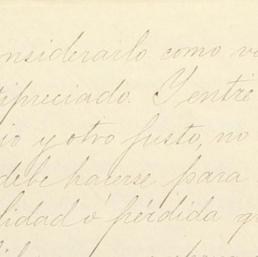 considerarlo como v
tipreciado. Y entre
io y otro justo, no
debe hacerse para
lidad ó pérdida q